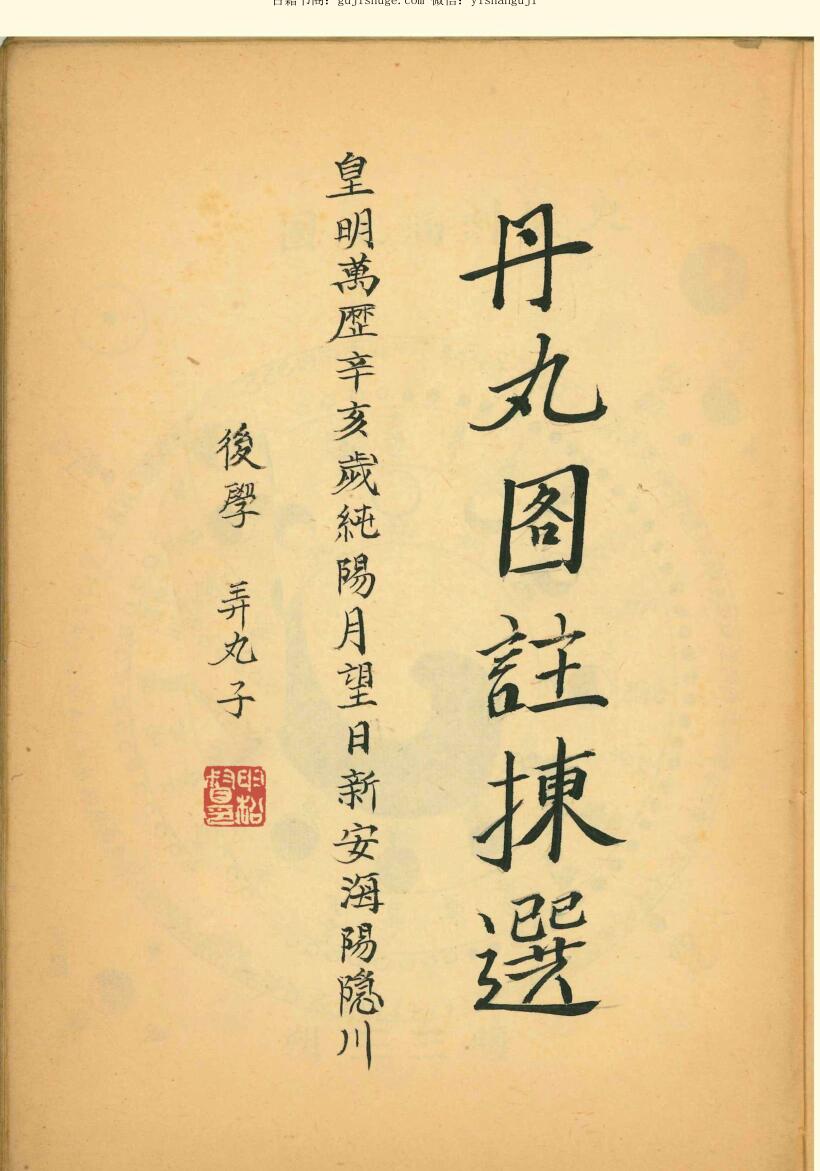 古籍书阁：gujishuge.com 微信：yishanguji
丹丸圖註揀選
皇明萬歷辛亥歲純陽月望日新安海陽隱川
後學 弄丸子